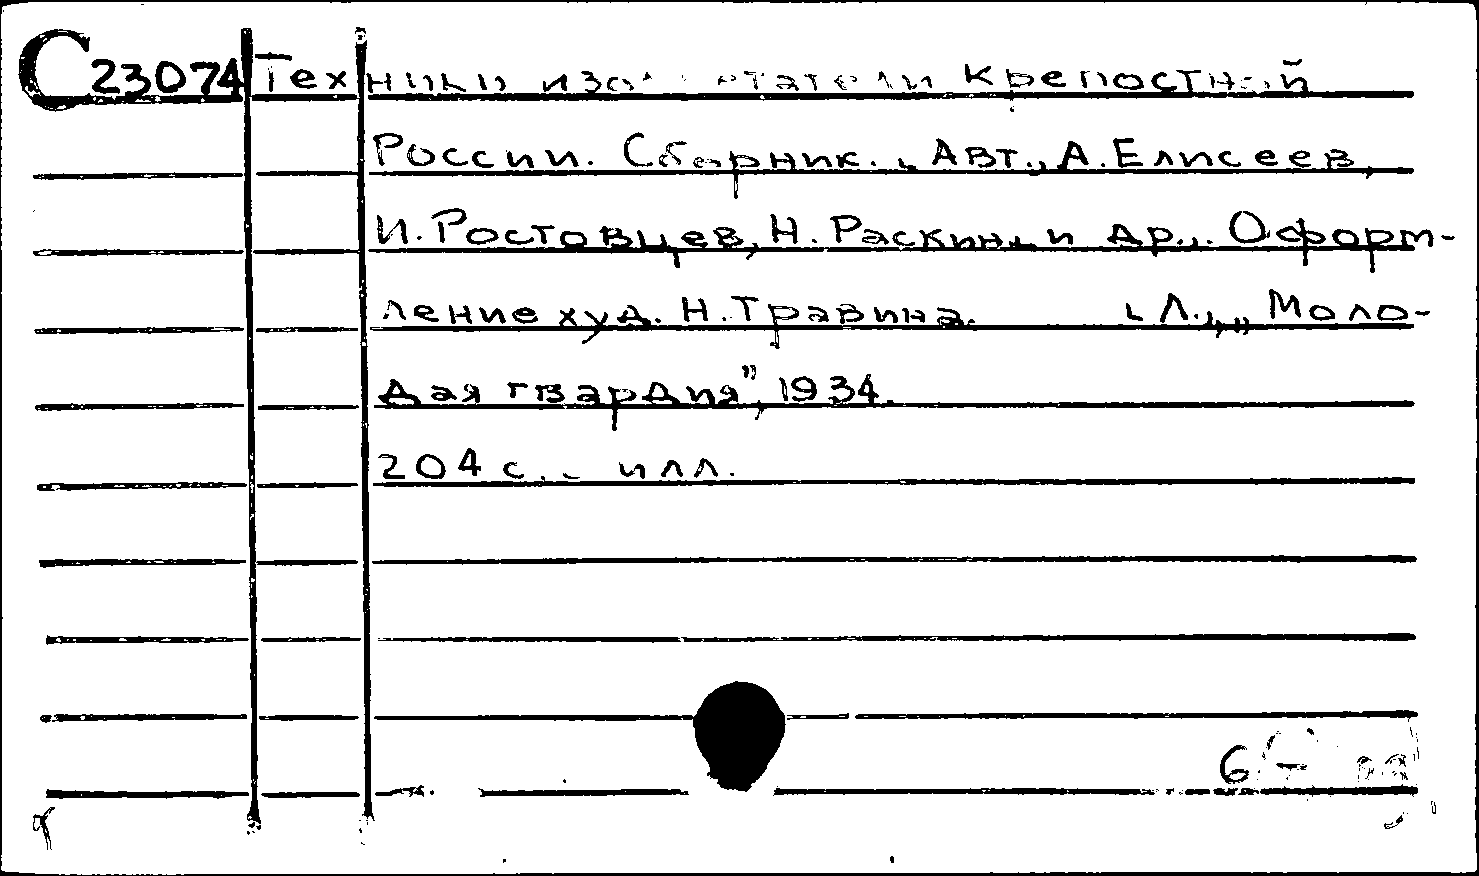 С23074 Техники изобретатели Крепостной
России. Сборник. [Авт.: А. Елисеев,
И. Ростовцев, Н. Раскин и др.]. Оформ-
ление худ. Н. Травина. [Л.], „Моло-
дая гвардия", 1934.
204 с. илл.